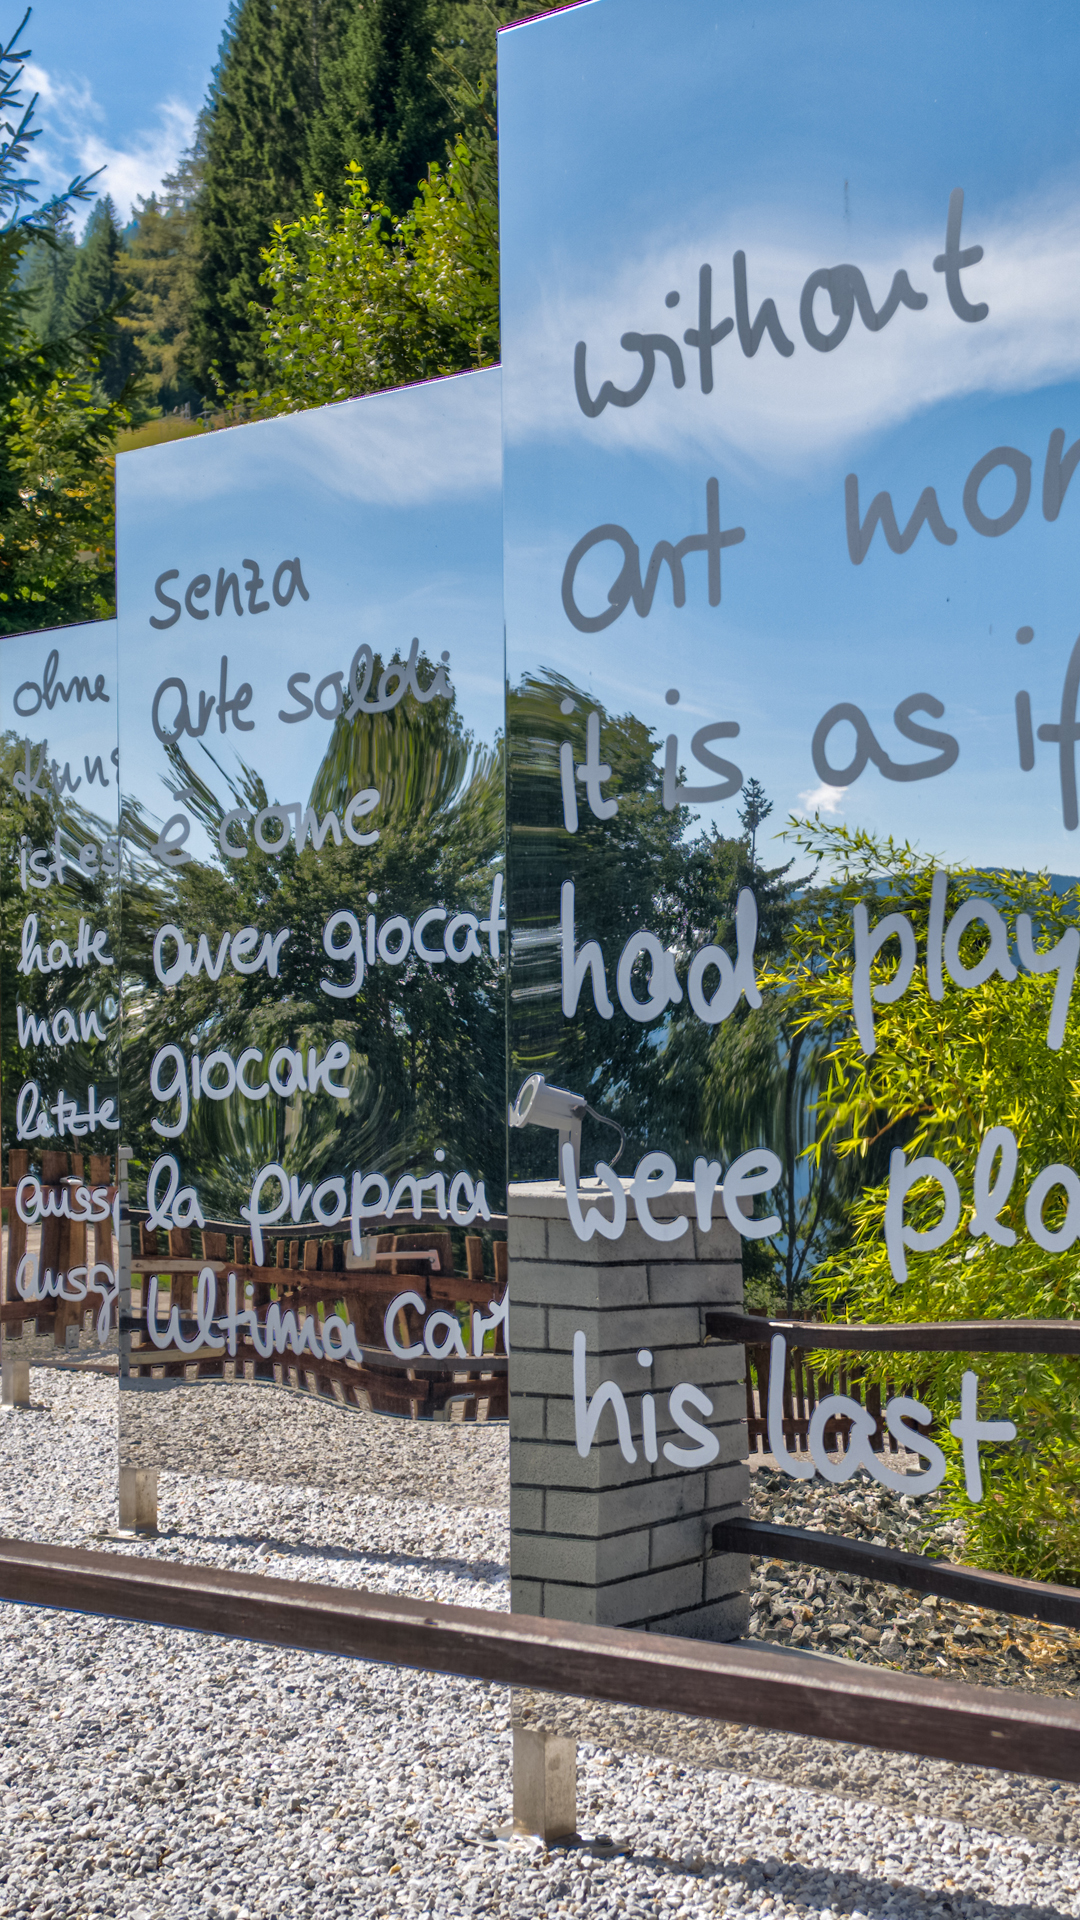 ohne
Kuns
ist es
hätte
man
letzte
aussp
ausg
senza
Arte soldi
è come
aver giocat
giocare
la propria
ultima Cart
without
art mon
it is as if
had play
were pla
his last